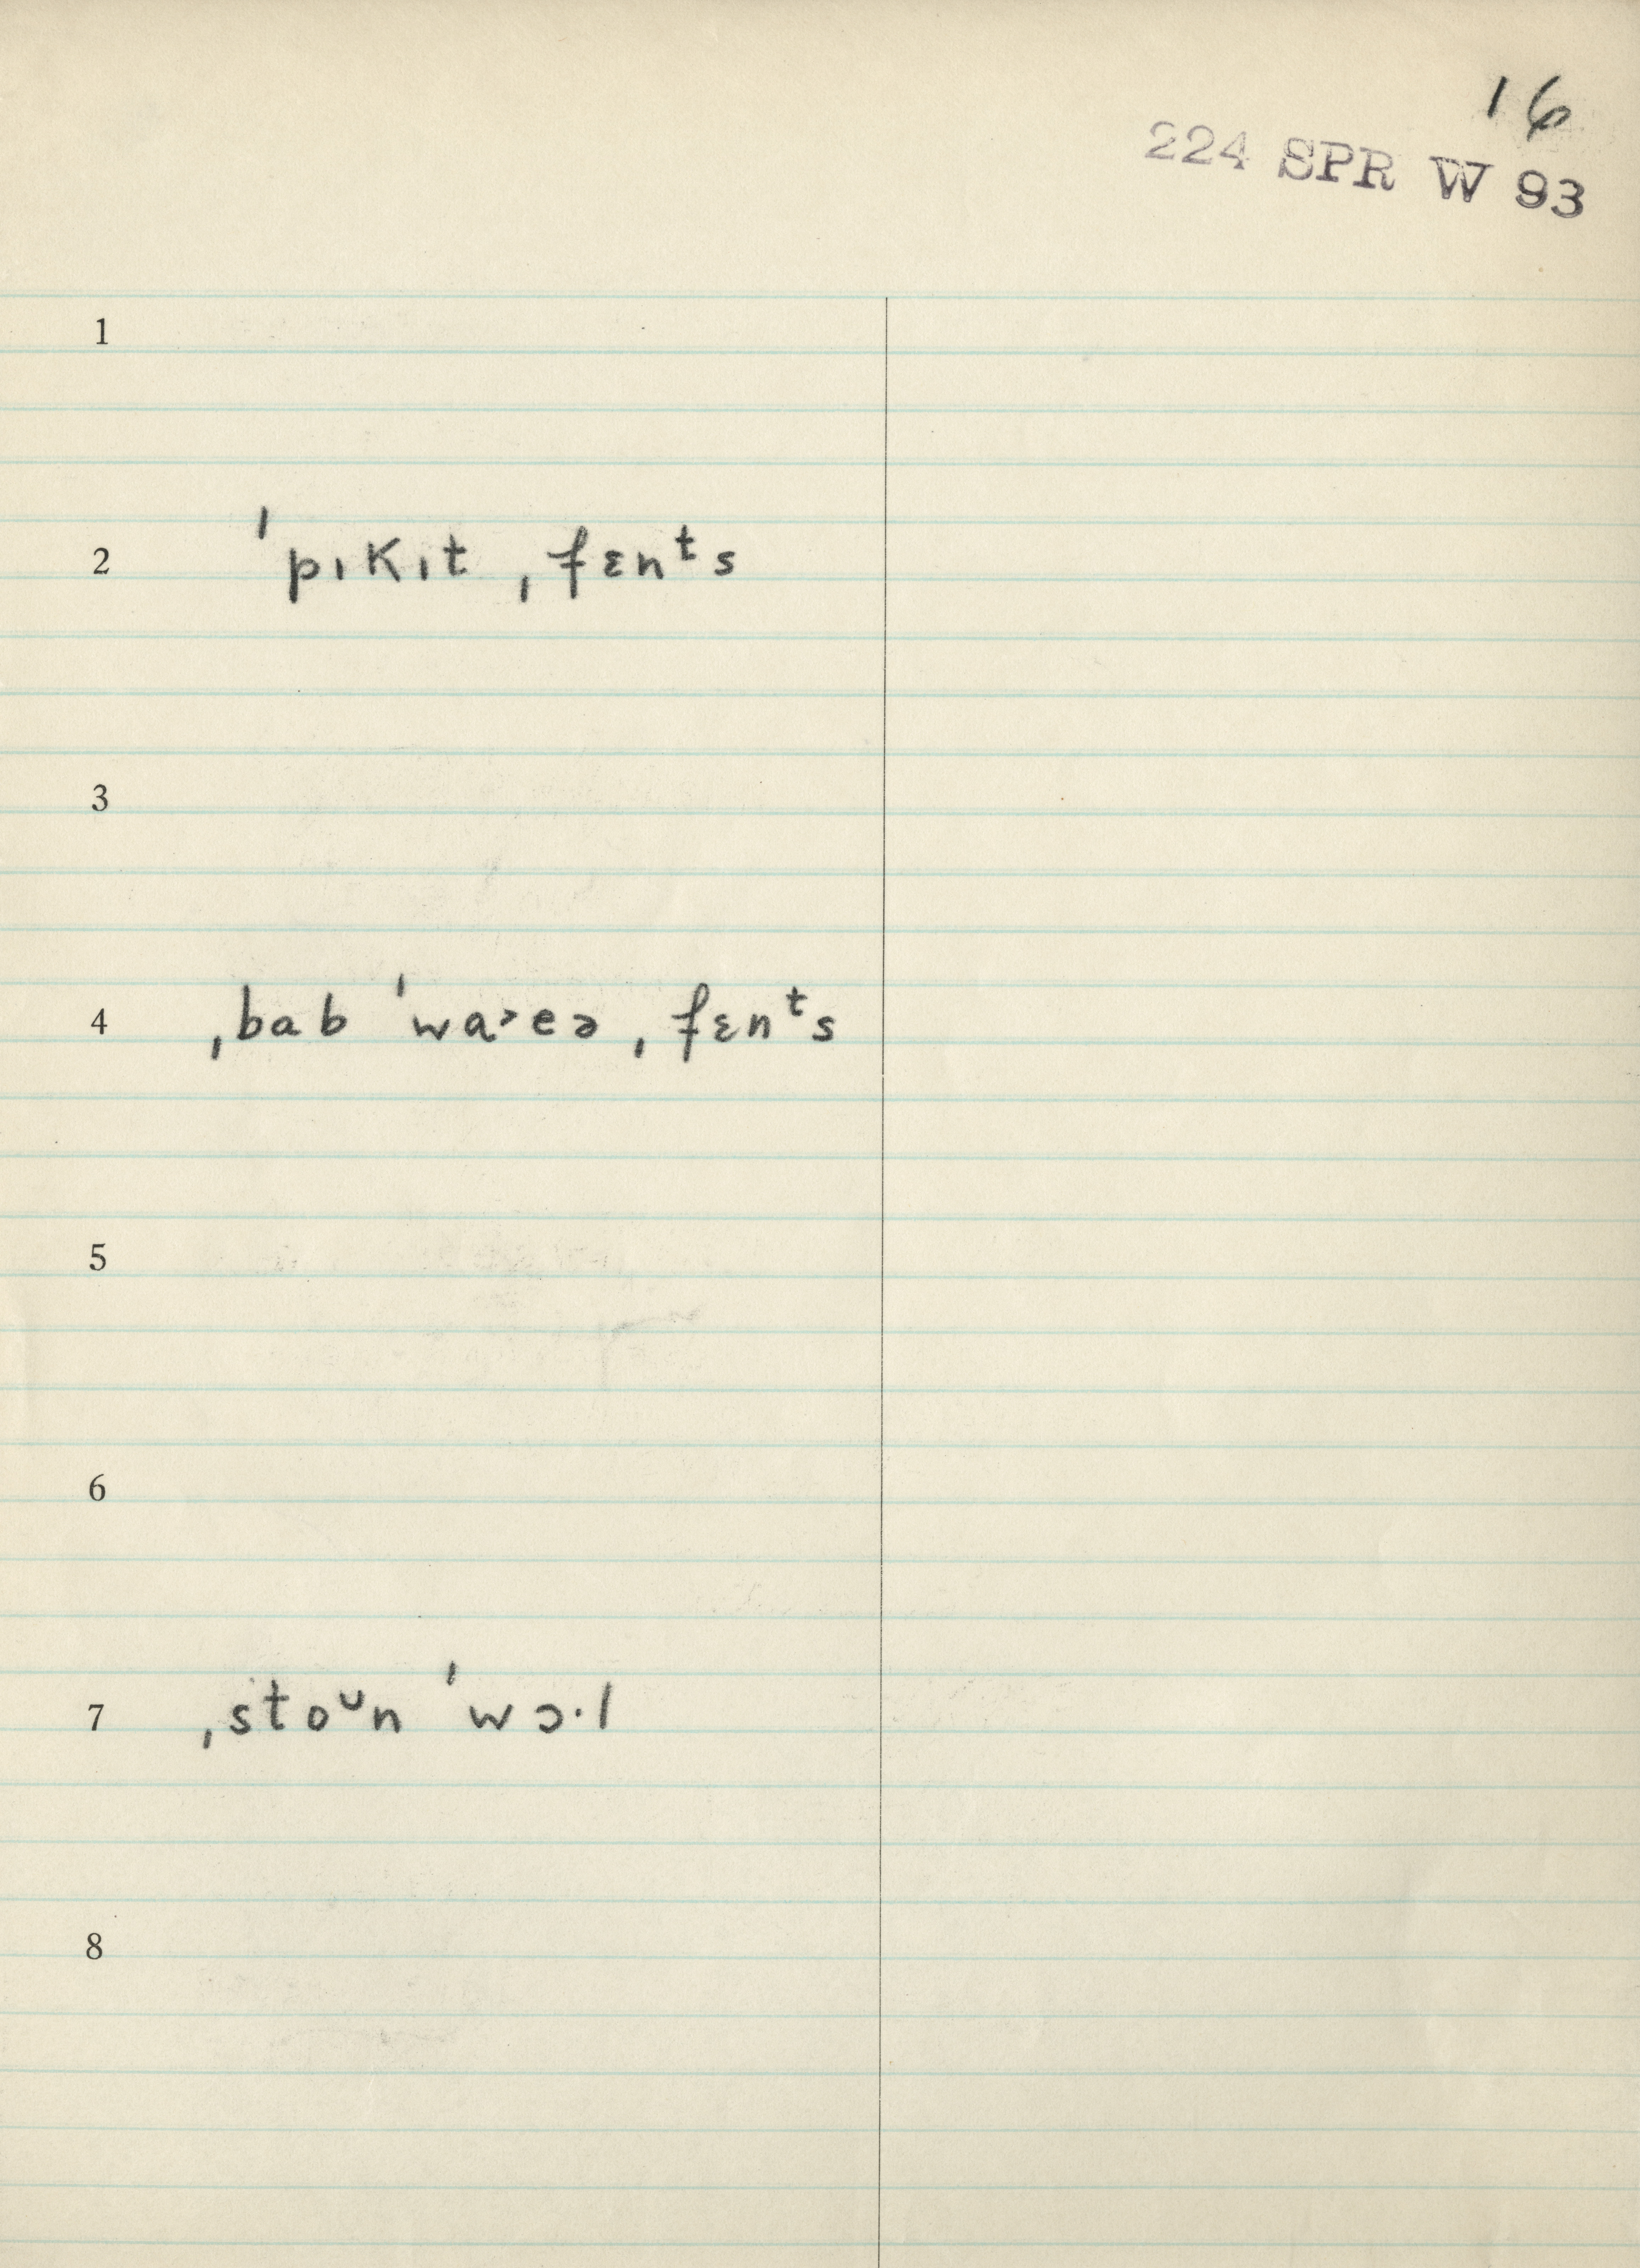 16
224 SPR W 93
1
2 ˈpɪkɪt ˌfɛnᵗs
3
4 ˌbab ˈwa˃eə ˌfɛnᵗs
5
6
7 ˌstoᴜn ˈwɔ·l
8